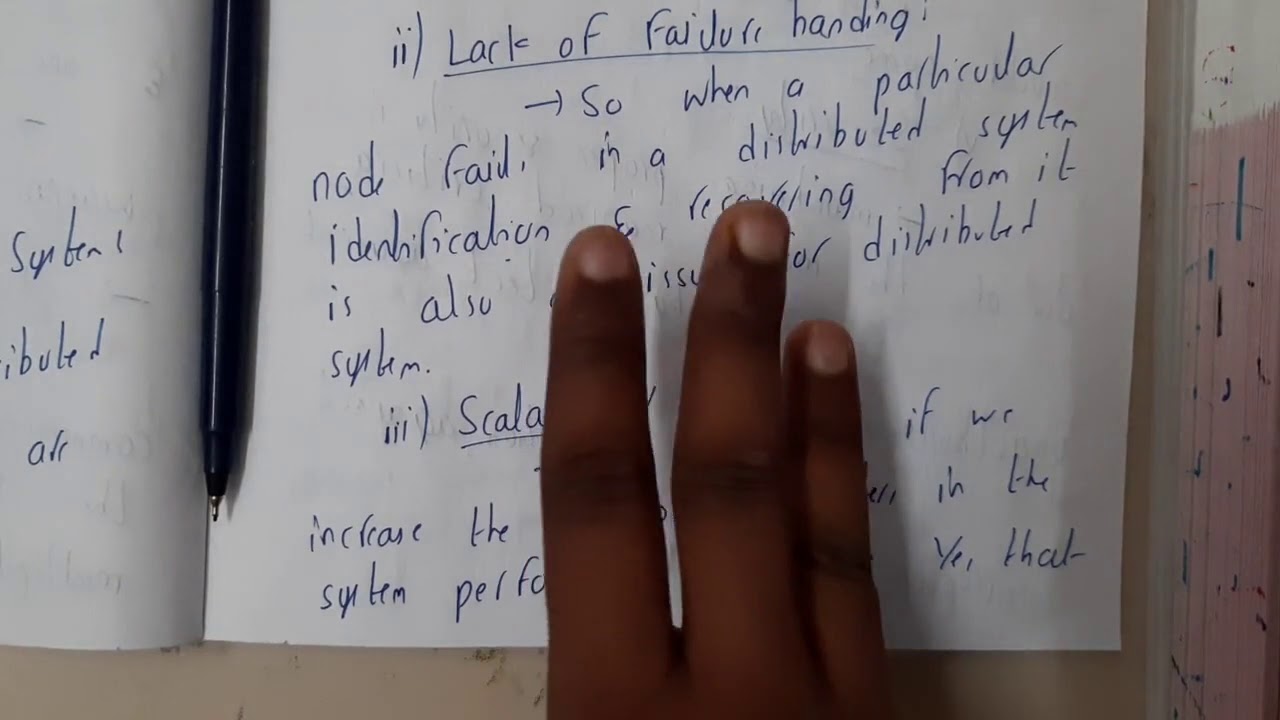 System:
ibuted
are
ii) Lack of Failure handing:
→ So when a particular
node fails in a distributed system
identification & recovering from it
is also issu or distributed
system.
iii) Scala if we
increase the ers in the
system perfo Yes that